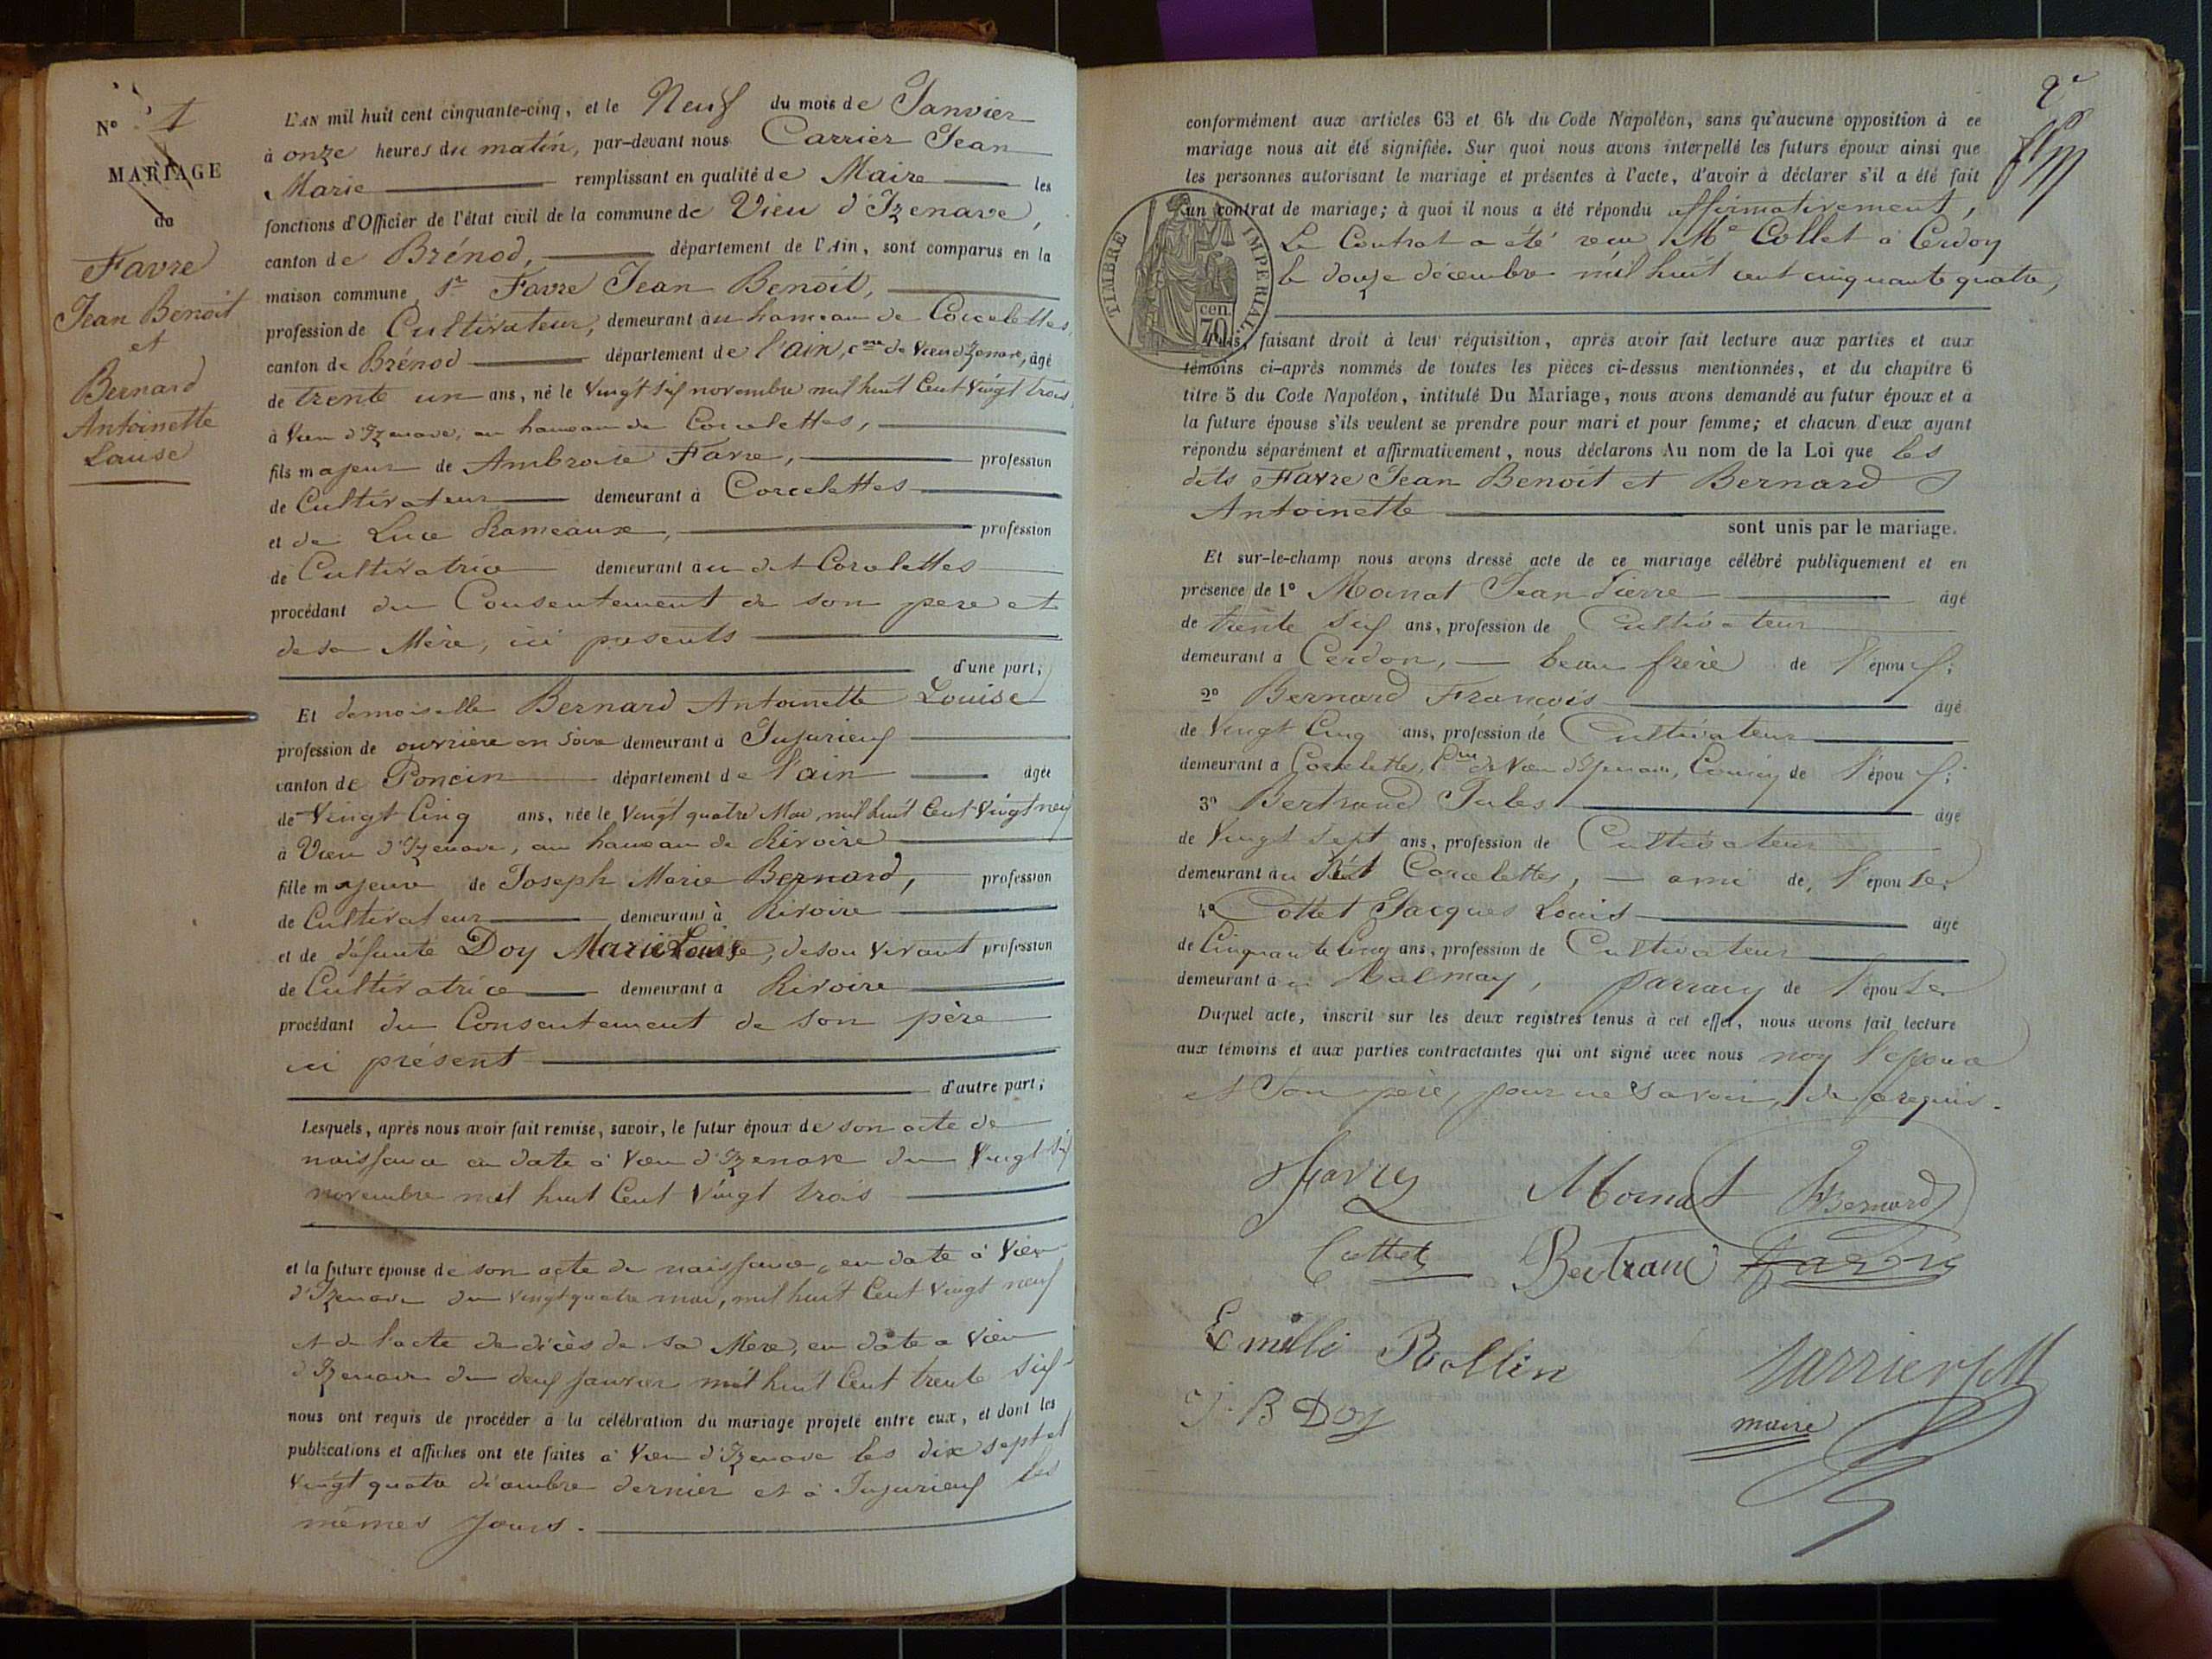 N° 1
MARIAGE
de
Favre
Jean Benoit
et
Bernard
Antoinette
Louise
L'AN mil huit cent cinquante-cinq, et le Neuf du mois de Janvier
à onze heures du matin, par-devant nous Carrier Jean
Marie remplissant en qualité de Maire les
fonctions d'Officier de l'état civil de la commune de Vieu d'Izenave,
canton de Brénod, département de l'Ain, sont comparus en la
maison commune Sr Favre Jean Benoit,
profession de Cultivateur, demeurant au hameau de Corcelettes,
canton de Brénod département de l'ain, cne de Vieu d'Izenave, âgé
de trente un ans, né le vingt six novembre mil huit Cent Vingt trois,
à Vieu d'Izenave, au hameau de Corcelettes,
fils majeur de Ambroise Favre, profession
de Cultivateur demeurant à Corcelettes
et de Luce Rameaux, profession
de Cultivatrice demeurant au dit Corcelettes
procédant du Consentement de son pere et
de sa Mère, ici présents
d'une part;
Et demoiselle Bernard Antoinette Louise
profession de ouvrière en Soie demeurant à Jujurieux
canton de Poncin département de l'ain âgée
de Vingt Cinq ans, née le Vingt quatre Mai mil huit Cent Vingt neuf
à Vieu d'Izenave, au hameau de Rivoire
fille majeure de Joseph Marie Bernard, profession
de Cultivateur demeurant à Rivoire
et de défunte Doy Marie Louise, de son vivant profession
de Cultivatrice demeurant à Rivoire
procédant du Consentement de son père
ici présent
d'autre part;
Lesquels, après nous avoir fait remise, savoir, le futur époux de son acte de
naissance en date à Vieu d'Izenave du Vingt six
novembre mil huit Cent Vingt trois
et la future épouse de son acte de naissance, en date à Vieu
d'Izenave du vingt quatre mai, mil huit Cent Vingt neuf
et de l'acte de décès de sa Mère, en date a Vieu
d'Izenave du deux janvier mil huit Cent trente six
nous ont requis de procéder à la célébration du mariage projeté entre eux, et dont les
publications et affiches ont été faites à Vieu d'Izenave les dix sept et
vingt quatre décembre dernier et à Jujurieux les
mêmes jours.
2e
conformément aux articles 63 et 64 du Code Napoléon, sans qu'aucune opposition à ce
mariage nous ait été signifiée. Sur quoi nous avons interpellé les futurs époux ainsi que
les personnes autorisant le mariage et présentes à l'acte, d'avoir à déclarer s'il a été fait
un contrat de mariage; à quoi il nous a été répondu affirmativement,
Le Contrat a été reçu Me Collet à Cerdon
le douze décembre mil huit cent cinquante quatre,
TIMBRE IMPERIAL.
70 cen.
Puis, faisant droit à leur réquisition, après avoir fait lecture aux parties et aux
témoins ci-après nommés de toutes les pièces ci-dessus mentionnées, et du chapitre 6
titre 5 du Code Napoléon, intitulé Du Mariage, nous avons demandé au futur époux et à
la future épouse s'ils veulent se prendre pour mari et pour femme; et chacun d'eux ayant
répondu séparément et affirmativement, nous déclarons Au nom de la Loi que les
dits Favre Jean Benoit et Bernard
Antoinette
sont unis par le mariage.
Et sur-le-champ nous avons dressé acte de ce mariage célébré publiquement et en
présence de 1° Jean Pierre âgé
de trente six ans, profession de Cultivateur
demeurant à Cerdon, beau frère de l'époux;
2° Bernard François âgé
de Vingt Cinq ans, profession de Cultivateur
demeurant à Corcelettes, Cne de Vieu d'Izenave, Cousin de l'époux;
3° Bertrand Jules âgé
de Vingt sept ans, profession de Cultivateur
demeurant au dit Corcelettes, ami de l'épouse;
4° Cottet Jacques Louis âgé
de Cinquante Cinq ans, profession de Cultivateur
demeurant à Balmay, parrain de l'épouse
Duquel acte, inscrit sur les deux registres tenus à cet effet, nous avons fait lecture
aux témoins et aux parties contractantes qui ont signé avec nous non l'épouse
et Son père, pour ne savoir, de ce requis.
Favre Bernard
Cottet Bertrand
Emilli Rollin
Carrier JM
J. B Doy
maire